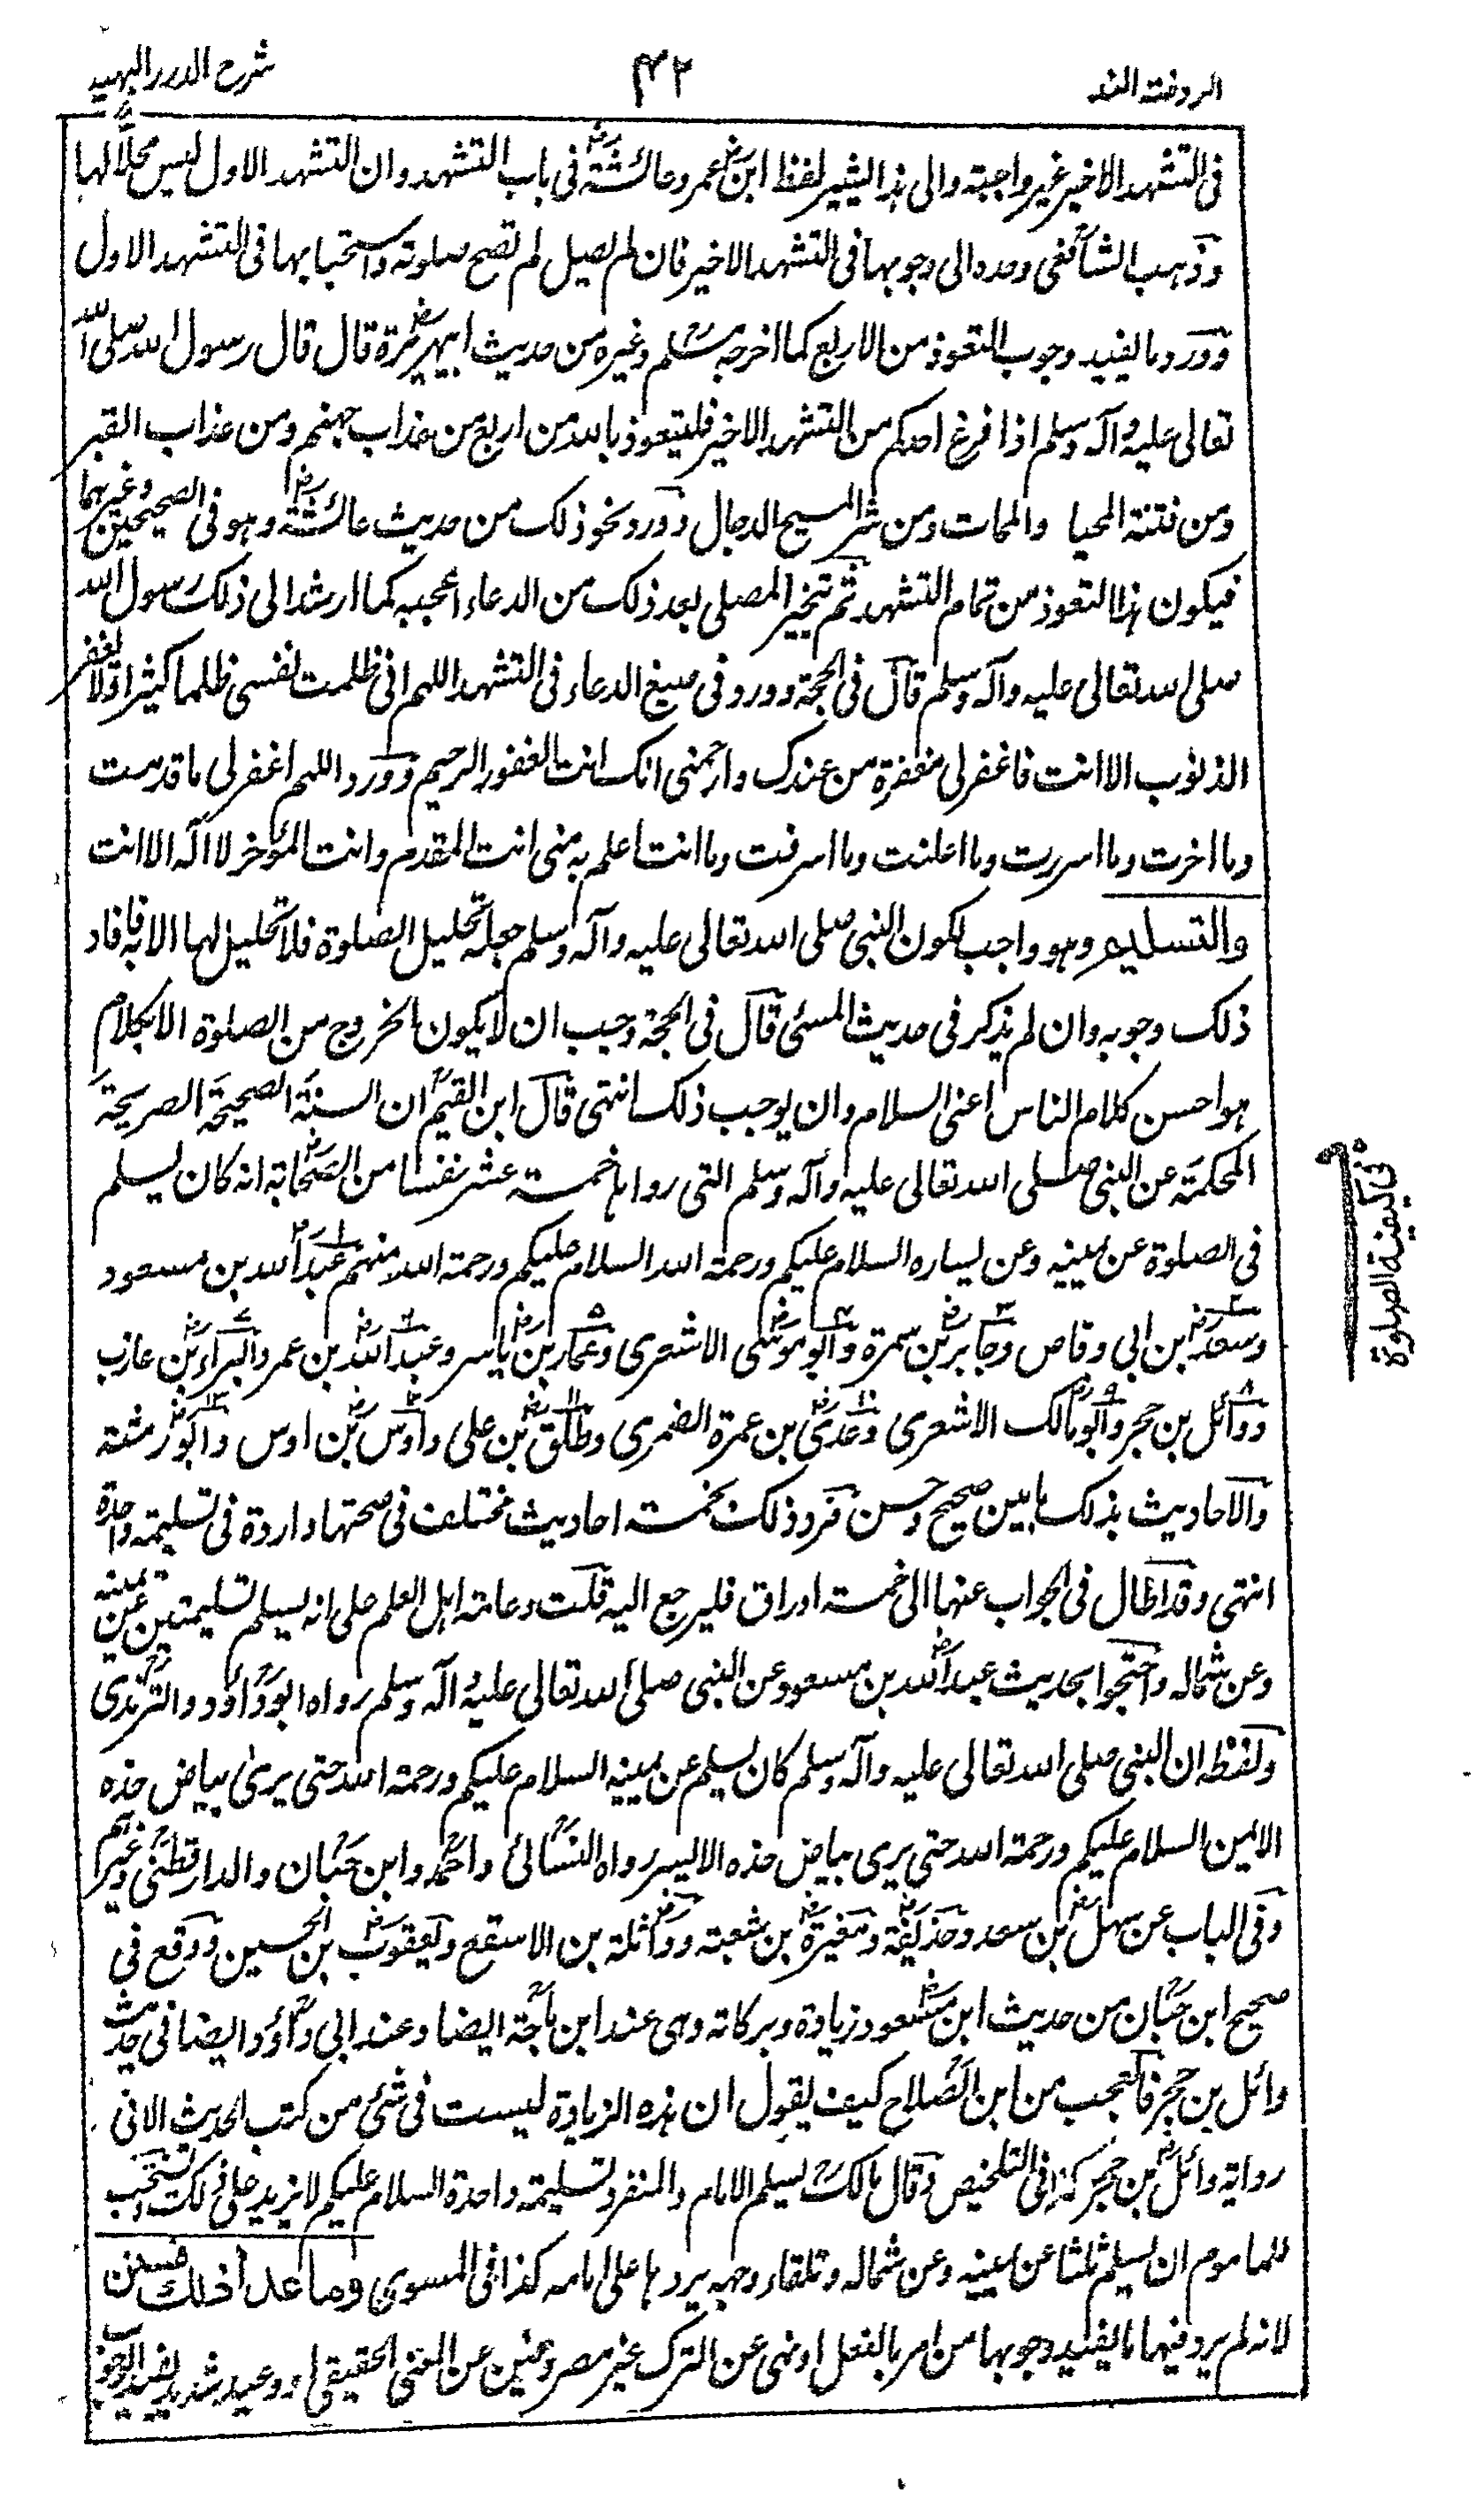 الروضة الند
٤٢
شرح الدرر البهية
فى التشهد الاخير غير واجبة والى هذا يشير لفظ ابن عمر وعائشة فى باب التشهد وان التشهد الاول ليس محلا لها
وذهب الشافعى وحده الى وجوبها فى التشهد الاخير فان لم يصل لم تصح صلوته واستحبابها فى التشهد الاول
وورد ما يفيد وجوب التعوذ من الاربع كما اخرجه مسلم وغيره من حديث ابيهريرة قال قال رسول الله صلى الله
تعالى عليه وآله وسلم اذا فرغ احدكم من التشهد الاخير فليتعوذ بالله من اربع من عذاب جهنم ومن عذاب القبر
ومن فتنة المحيا والممات ومن شر المسيح الدجال وورد نحو ذلك من حديث عائشة وهو فى الصحيحين وغيرهما
فيكون هذا التعوذ من تمام التشهد ثم يتخير المصلى بعد ذلك من الدعاء اعجبه كما ارشد الى ذلك رسول الله
صلى الله تعالى عليه وآله وسلم قال فى الحجة وورد فى صيغ الدعاء فى التشهد اللهم انى ظلمت نفسى ظلما كثيرا ولا يغفر
الذنوب الا انت فاغفر لى مغفرة من عندك وارحمنى انك انت الغفور الرحيم وورد اللهم اغفر لى ما قدمت
وما اخرت وما اسررت وما اعلنت وما اسرفت وما انت اعلم به منى انت المقدم وانت المؤخر لا اله الا انت
والتسليم وهو واجب لكون النبى صلى الله تعالى عليه وآله وسلم جعله تحليل الصلوة فلا تحليل لها الا به فافاد
ذلك وجوبه وان لم يذكر فى حديث المسئ قال فى الحجة وجب ان لا يكون الخروج من الصلوة الا بكلام
هو احسن كلام الناس اعنى السلام وان يوجب ذلك انتهى قال ابن القيم ان السنة الصحيحة الصريحة
المحكمة عن النبى صلى الله تعالى عليه وآله وسلم التى رواها خمسة عشر نفسا من الصحابة انه كان يسلم
فى الصلوة عن يمينه وعن يساره السلام عليكم ورحمة الله السلام عليكم ورحمة الله منهم عبد الله بن مسعود
وسعد بن ابي وقاص وجابر بن سمرة وابو موسى الاشعرى وعمار بن ياسر وعبد الله بن عمر والبراء بن عازب
ووائل بن حجر وابو مالك الاشعرى وعدى بن عمرة الضمرى وطلق بن على واوس بن اوس وابو رمثة
والاحاديث بذلك ما بين صحيح وحسن فرد ذلك بخمسة احاديث مختلف فى صحتها واردة فى تسليمة واحدة
انتهى وقد اطال فى الجواب عنها الى خمسة اوراق فليرجع اليه قلت وعامة اهل العلم على انه يسلم تسليمتين عن يمينه
وعن شماله واحتجوا بحديث عبد الله بن مسعود عن النبى صلى الله تعالى عليه وآله وسلم رواه ابو داؤد والترمذى
ولفظه ان النبى صلى الله تعالى عليه وآله وسلم كان يسلم عن يمينه السلام عليكم ورحمة الله حتى يرى بياض خده
الايمن السلام عليكم ورحمة الله حتى يرى بياض خده الايسر رواه النسائى واحمد وابن حبان والدارقطنى وغيرهم
وفى الباب عن سهل بن سعد وحذيفة ومغيرة بن شعبة وواثلة بن الاسقع ويعقوب بن الحسين ووقع فى
صحيح ابن حبان من حديث ابن مسعود زيادة وبركاته وهى عند ابن ماجة ايضا وعند ابى داؤد ايضا فى حديث
وائل بن حجر فالعجب من ابن الصلاح كيف يقول ان هذه الزيادة ليست فى شئ من كتب الحديث الا فى
رواية وائل بن حجر كذا فى التلخيص وقال مالك يسلم الامام والمنفرد تسليمة واحدة السلام عليكم لا يزيد على ذلك ويستحب
للماموم ان يسلم ثلثا عن يمينه وعن شماله وتلقاء وجهه يردها على امامه كذا فى المسوى وما عدا ذلك فسنن
لانه لم يرد فيها ما يفيد وجوبها من امر بالفعل او نهى عن الترك غير مصروفين عن المعنى الحقيقى او وعيد شديد يفيد الوجوب
فى كيفية الصلوة